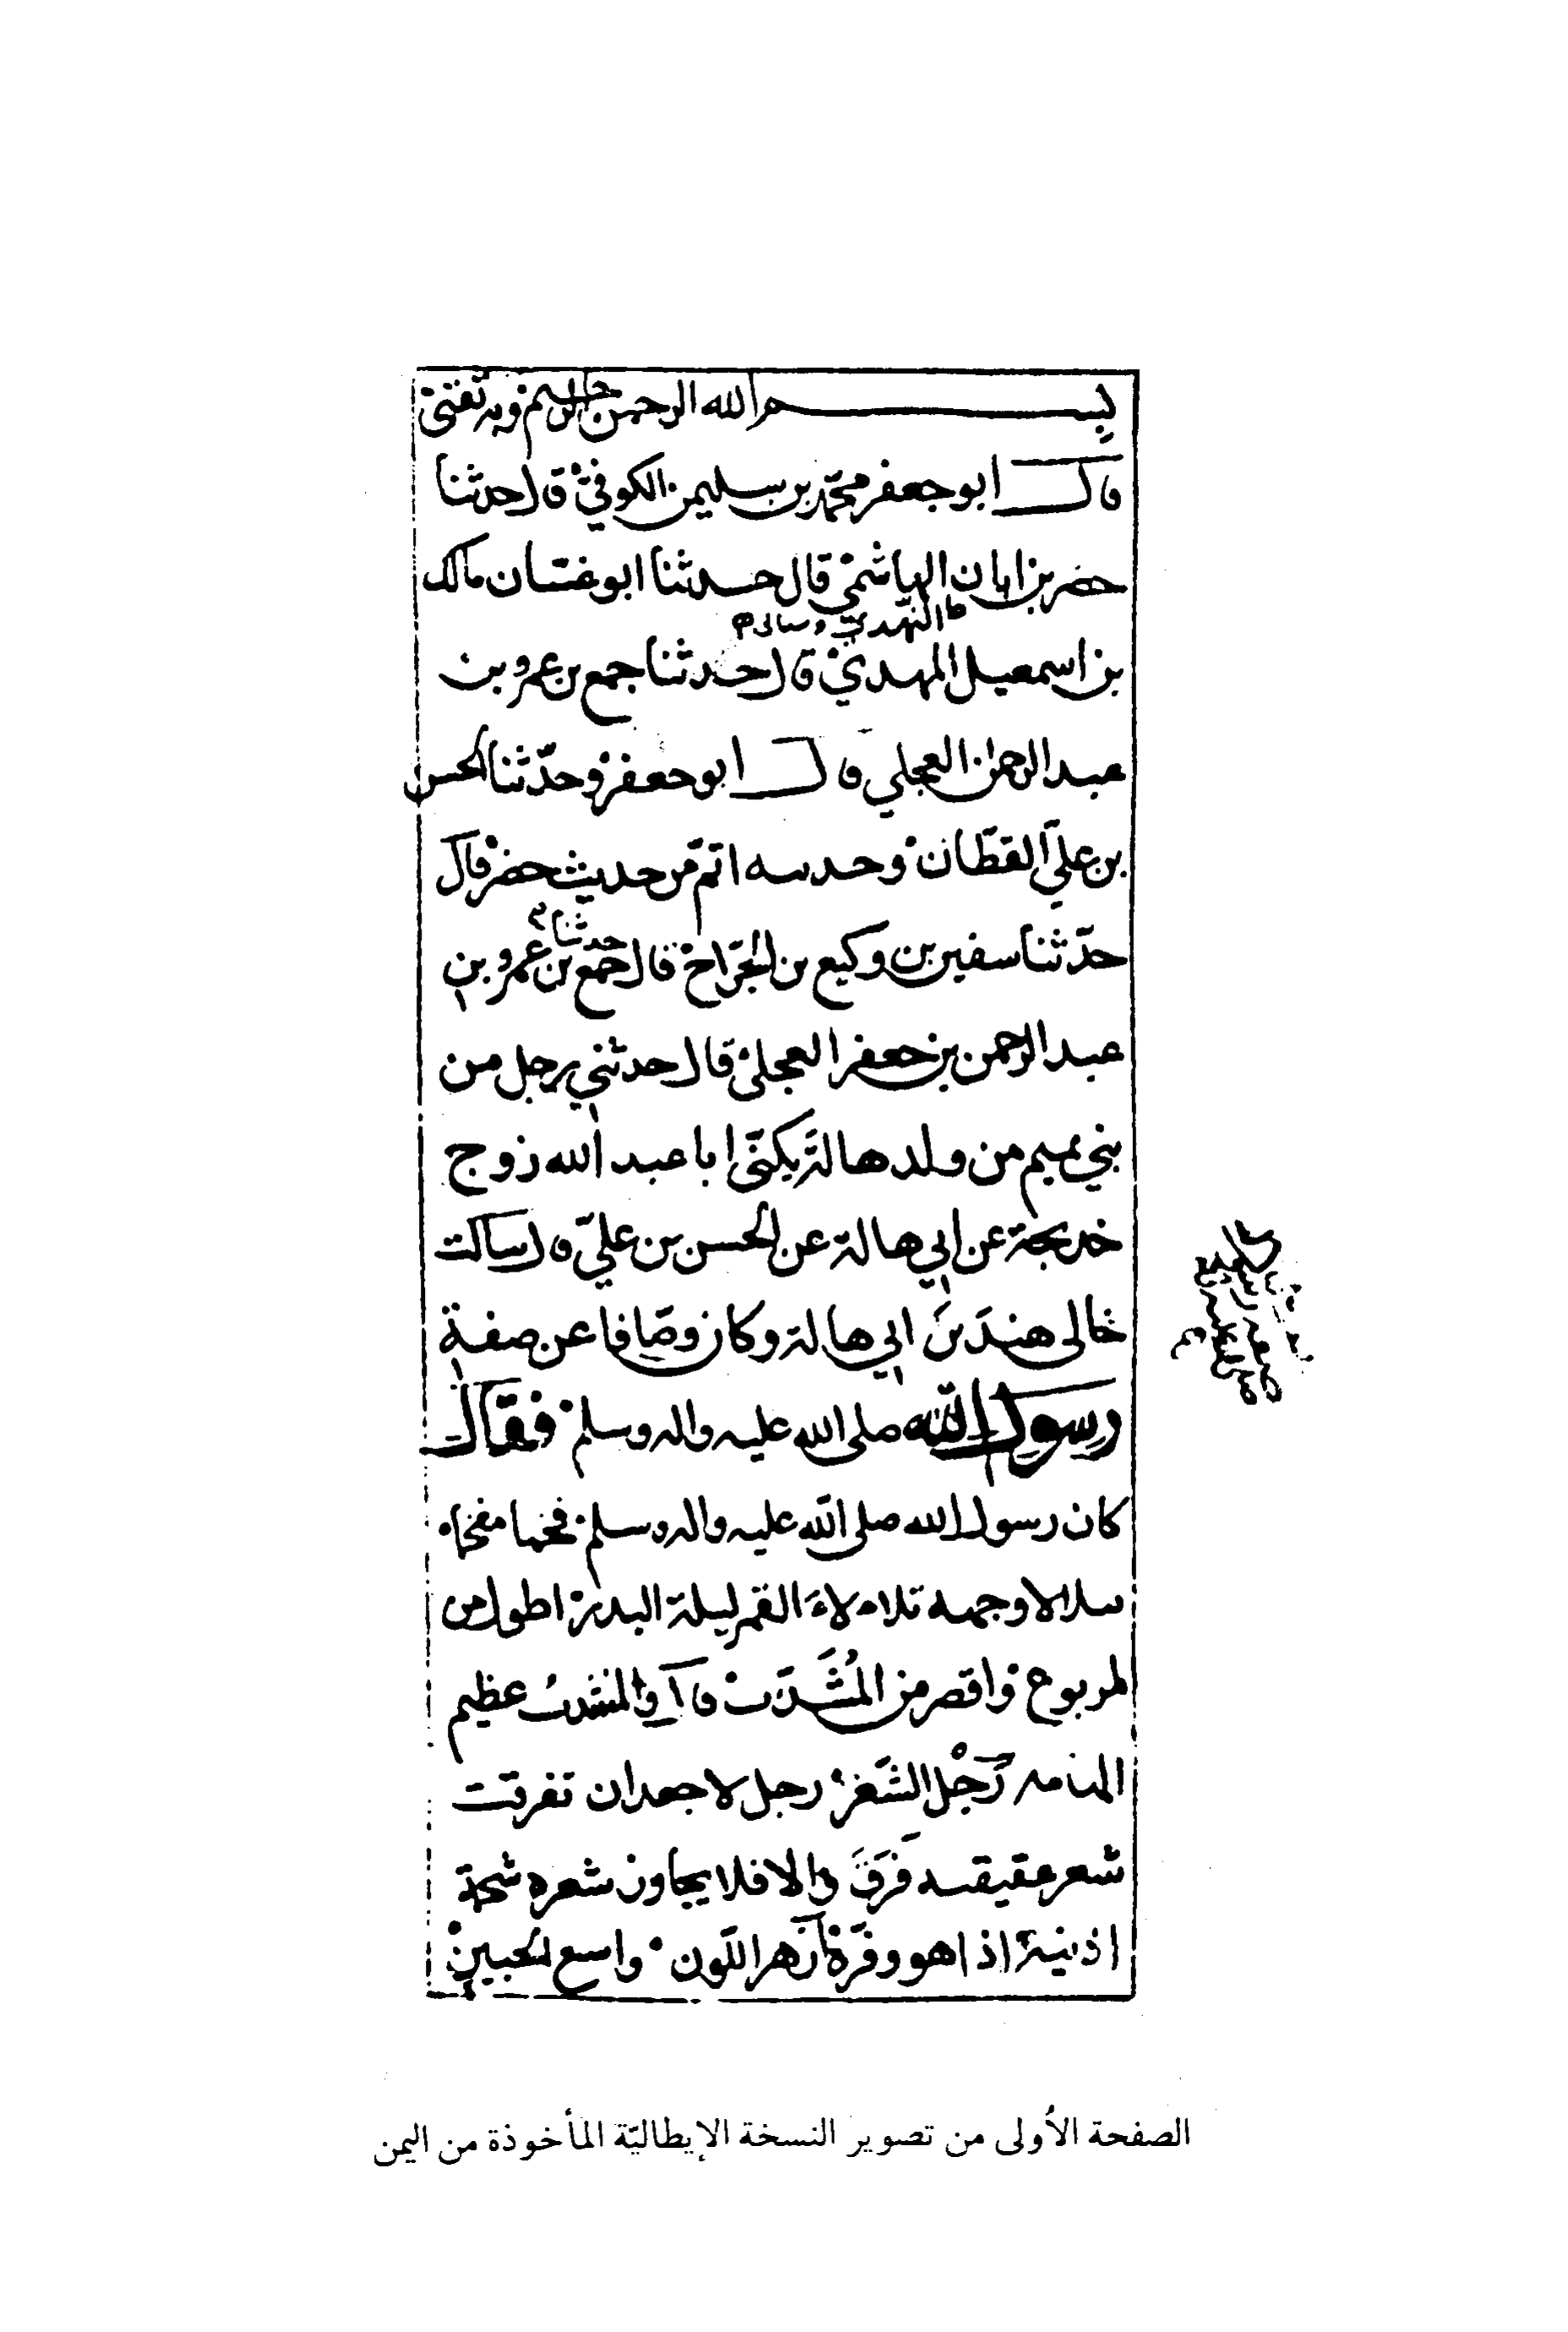 بسم الله الرحمن الرحيم وبه ثقتي
قال ابو جعفر محمّد بن سليمن الكوفي قال حدثنا
خضر بن ابان الهاشمي قال حدثنا ابو غسان مالك
النهدي
بن اسمعيل المهدي قال حدثنا جمع بن عمرو بن
عبد الرحمن العجلي قال ابو جعفر وحدّثنا الحسن
بن عليّ القطّان وحدىىه اتمّ من حديث خضر قال
حدثنا
حدّثنا سفين بن وكيع بن الجرّاح قال جمع بن عمرو بن
عبد الرحمن بن جعفر العجلي قال حدثني رجل من
بني تميم من ولد هالة يكنّى ابا عبد الله زوج
خديجة عن ابي هالة عن الحسن بن عليّ قال سالت
خالى هند بن ابي هالة وكان وصّافا عن صفة
رسول الله صلى الله عليه واله وسلم فقال
كان رسول الله صلى الله عليه واله وسلم فخما مفخما
ىىلالا وجهه تلاه لاء القمر ليلة البدر اطول من
المربوع واقصر من المُشَذّب قال والمشذب عظيم
الهامه رَجْل الشعر رجل لا جعد ان تفرقت
شعر عقيقته فَرَقَ والا فلا يجاوز شعره شحمة
اذنيه اذا هو وفّرة أزهر اللون واسع الجبين
الصفحة الأولى من تصوير النسخة الإيطاليّة المأخوذة من اليمن